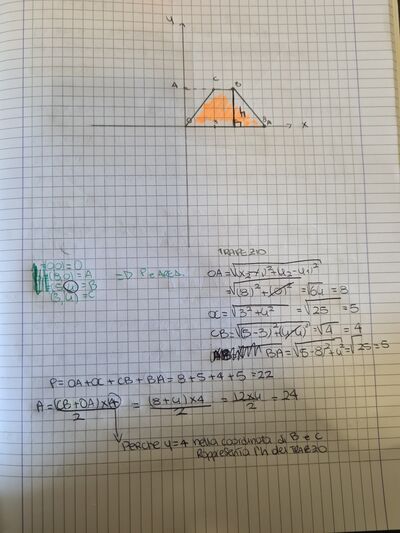 y
A
C
B
h
O
A
x
(0,0)=O
(8,0)=A
(5,4)=B
(3,4)=C
=D P e AREA.
TRAPEZIO
OA=√(x2-x1)²+(y2-y1)²
=√(8)²+(0)²=√64=8
OC=√3²+4²=√25=5
CB=√(5-3)²+(4-4)²=√4=4
BA=√(5-8)²+4²=√25=5
P=OA+OC+CB+BA=8+5+4+5=22
A=(CB+OA)×4/2=(8+4)×4/2=12×4/2=24
PERCHE y=4 nella coordinata di B e C
Rappresenta l'h del TRAPEZIO